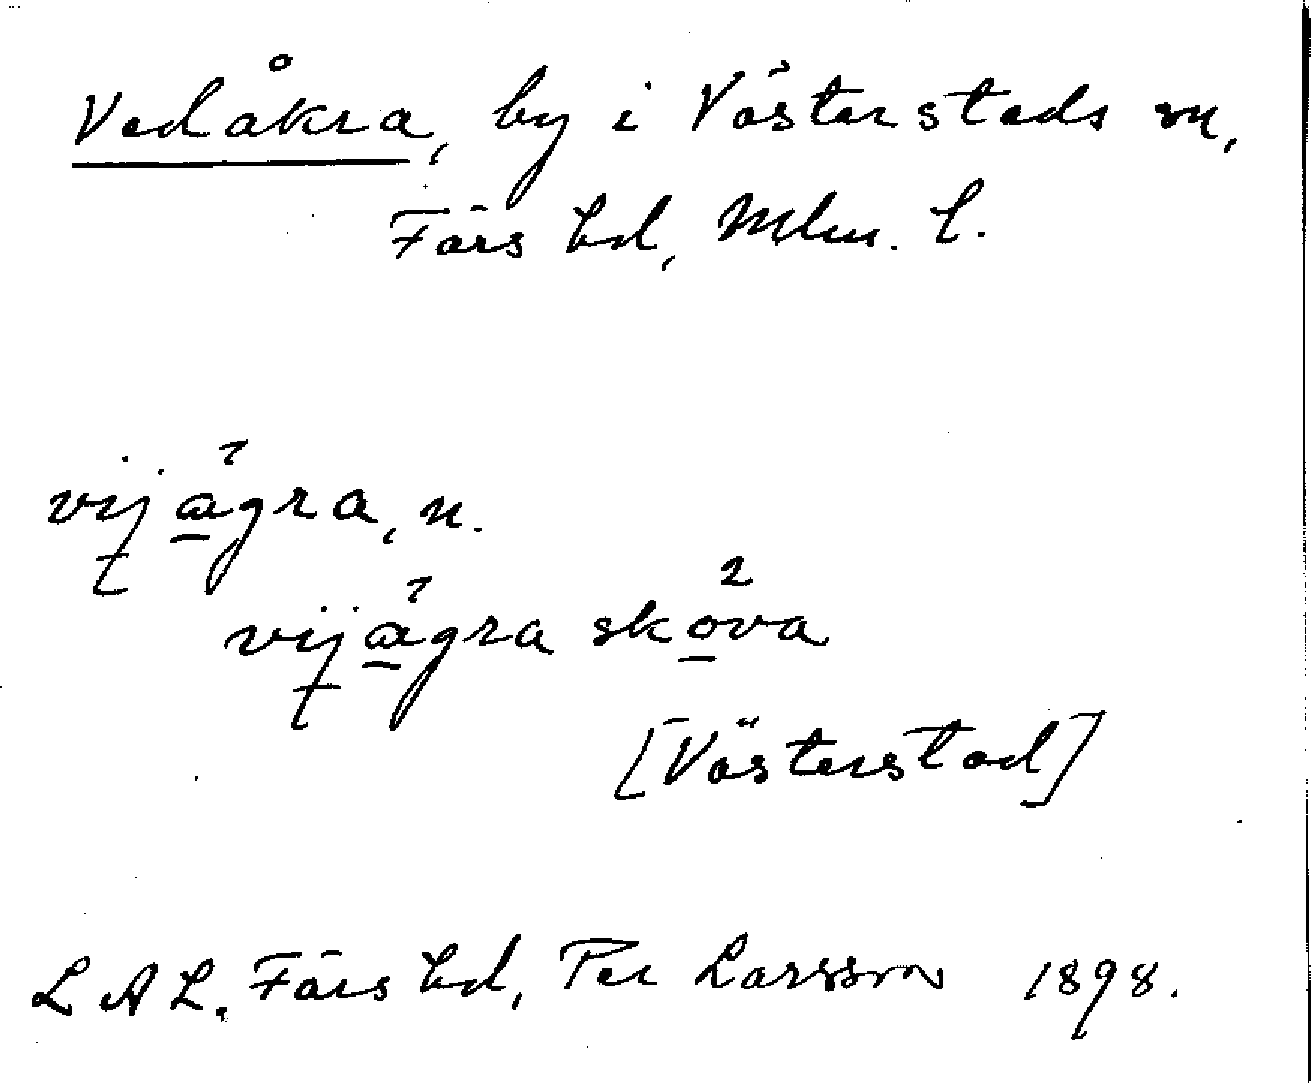 Vedåkra, by i Västerstads sn,
Färs hd, Mlm. l.
vijågra, n.
vijågra skova
[Västerstad]
LAL. Färs hd, Per Larsson 1898.